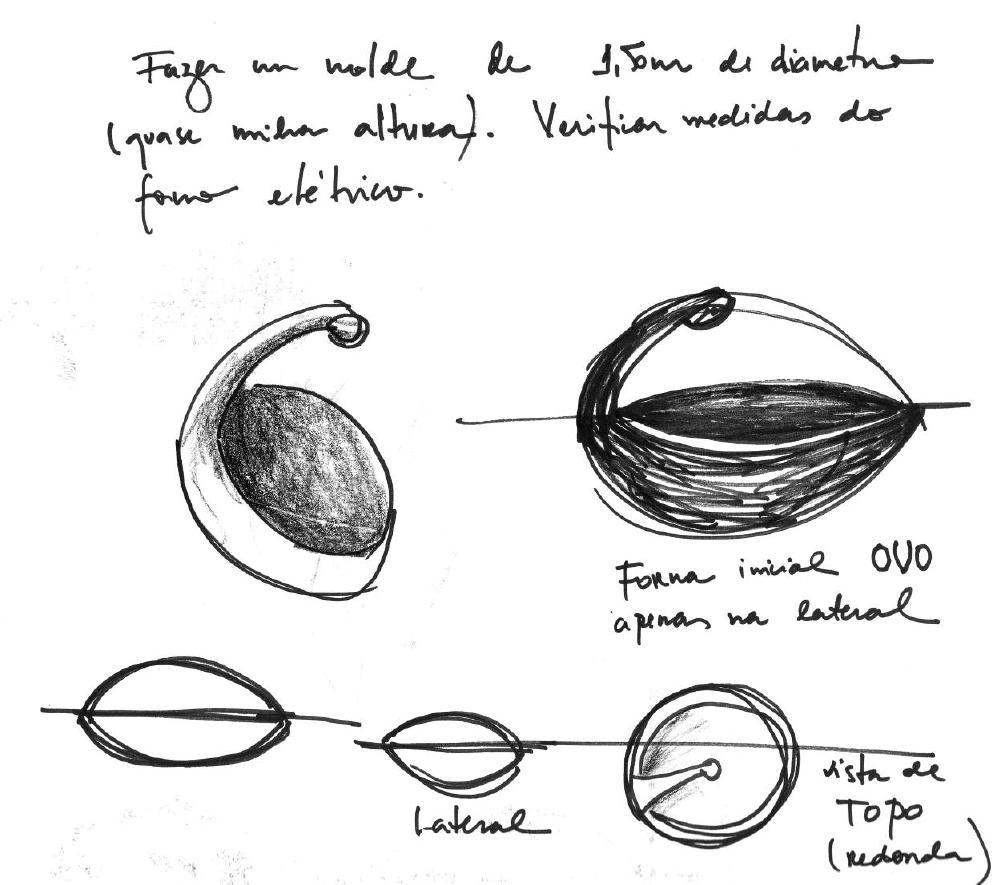 Fazer um molde de 1,50m de diametro
(quase minha altura). Verificar medidas do
forno elétrico.
Forma inicial OVO
apenas na lateral
Lateral
vista de
TOPO
(redonda)